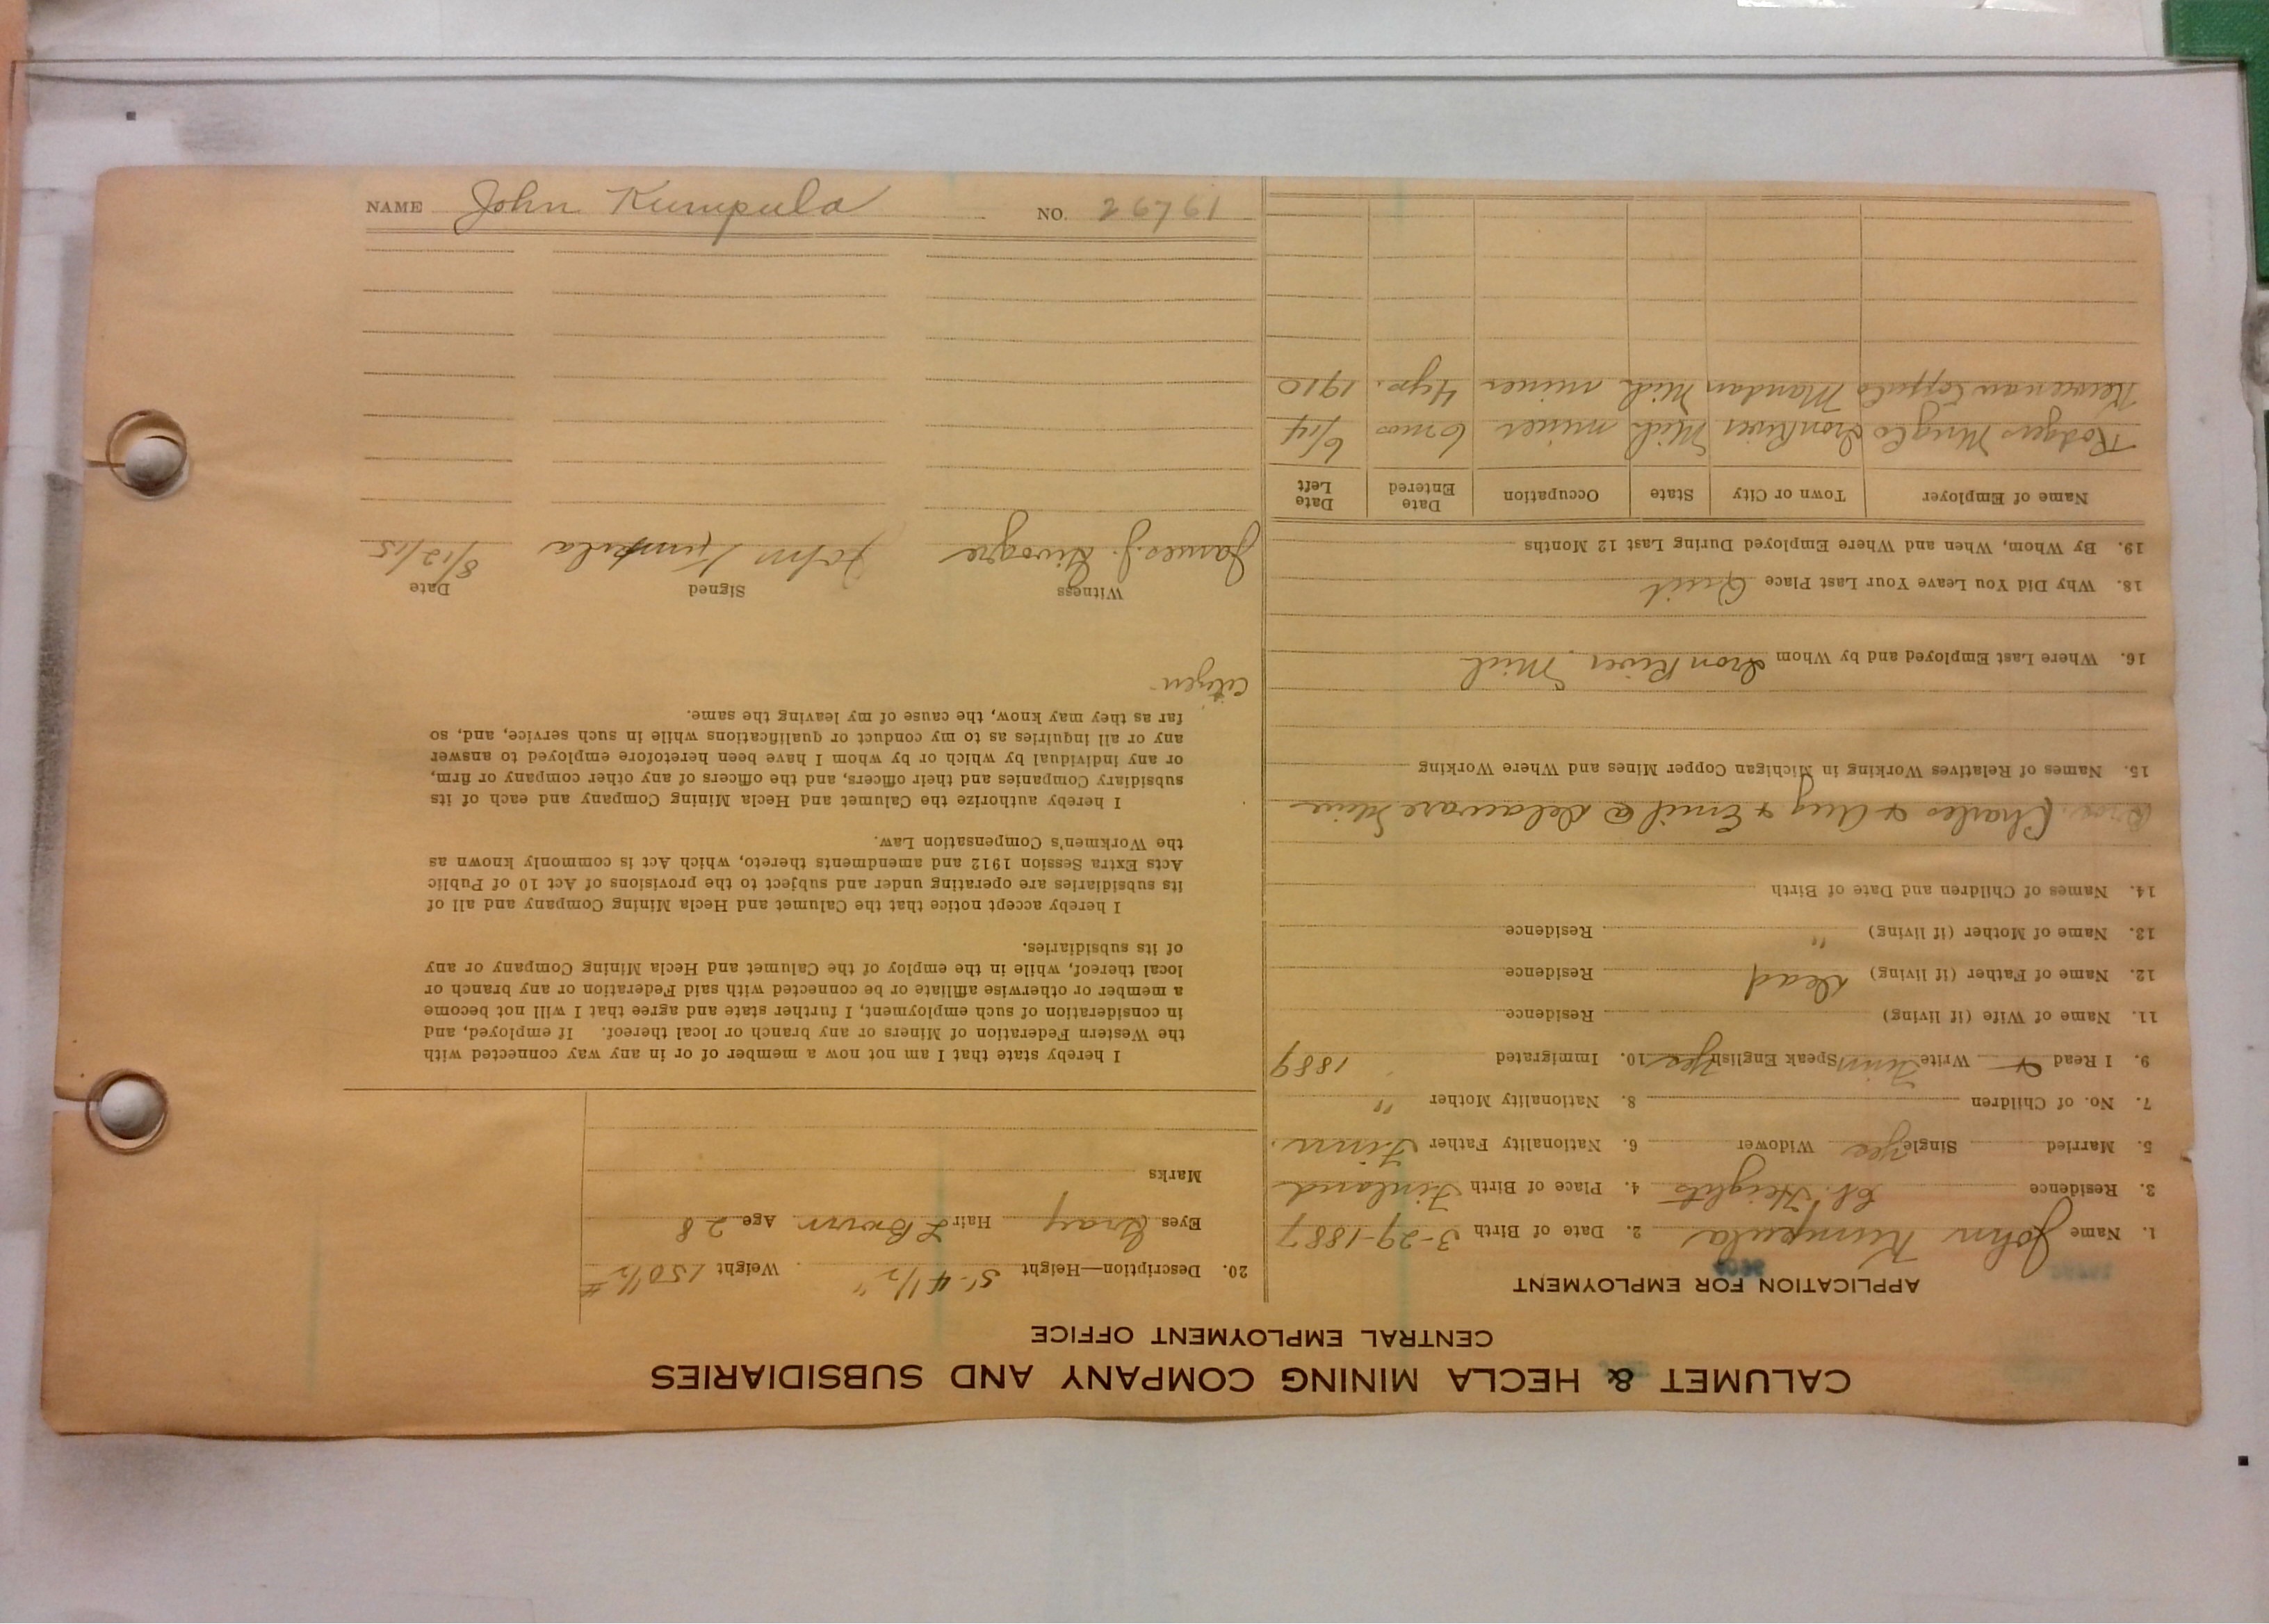 CALUMET & HECLA MINING COMPANY AND SUBSIDIARIES
CENTRAL EMPLOYMENT OFFICE
APPLICATION FOR EMPLOYMENT
1. Name John Kumpula 2. Date of Birth 3-29-1887
3. Residence Cl. Heights 4. Place of Birth Finland
5. Married Single yes Widower 6. Nationality Father Finn.
7. No. of Children 8. Nationality Mother "
9. I Read & Write Finn Speak English yes 10. Immigrated 1889
11. Name of Wife (if living) Residence
12. Name of Father (if living) Dead Residence
13. Name of Mother (if living) " Residence
14. Names of Children and Date of Birth
Bros. Charles & Aug & Emil @ Delaware Mine
15. Names of Relatives Working in Michigan Copper Mines and Where Working
16. Where Last Employed and by Whom Iron River, Mich
18. Why Did You Leave Your Last Place Quit
19. By Whom, When and Where Employed During Last 12 Months
Name of Employer Town or City State Occupation Date Entered Date Left
Rodgers Mng Co Iron River Mich miner 6 mos 6/14
Keweenaw Copper Co Mandan Mich miner 4 yr. 1910
20. Description—Height 5'-4 1/2" Weight 150 1/2 #
Eyes Gray Hair L Brown Age 28
Marks
I hereby state that I am not now a member of or in any way connected with
the Western Federation of Miners or any branch or local thereof. If employed, and
in consideration of such employment, I further state and agree that I will not become
a member or otherwise affiliate or be connected with said Federation or any branch or
local thereof, while in the employ of the Calumet and Hecla Mining Company or any
of its subsidiaries.
I hereby accept notice that the Calumet and Hecla Mining Company and all of
its subsidiaries are operating under and subject to the provisions of Act 10 of Public
Acts Extra Session 1912 and amendments thereto, which Act is commonly known as
the Workmen's Compensation Law.
I hereby authorize the Calumet and Hecla Mining Company and each of its
subsidiary Companies and their officers, and the officers of any other company or firm,
or any individual by which or by whom I have been heretofore employed to answer
any or all inquiries as to my conduct or qualifications while in such service, and, so
far as they may know, the cause of my leaving the same.
Citizen
Witness Signed Date
James J. John Kumpula 8/12/15
NAME John Kumpula NO. 26761